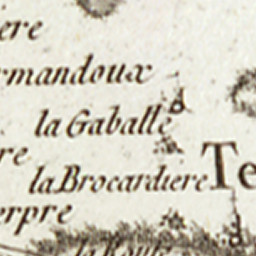 ere
rmandoux
la Gaballe
re
la Brocardiere
Te
erpre
la Route